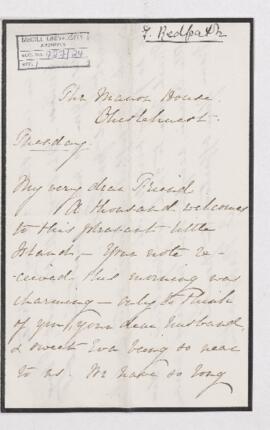 McGILL UNIVERSITY
ARCHIVES
ACC. NO. 927/24
REF.
J. Redpath
The Manor House.
Chislehurst.
Tuesday.
My very dear Friend
A thousand welcomes
to this pleasant little
Island,- Your note re-
-ceived this morning was
charming - only to think
of you, your dear husband,
& sweet Eva being so near
to us. We have so long